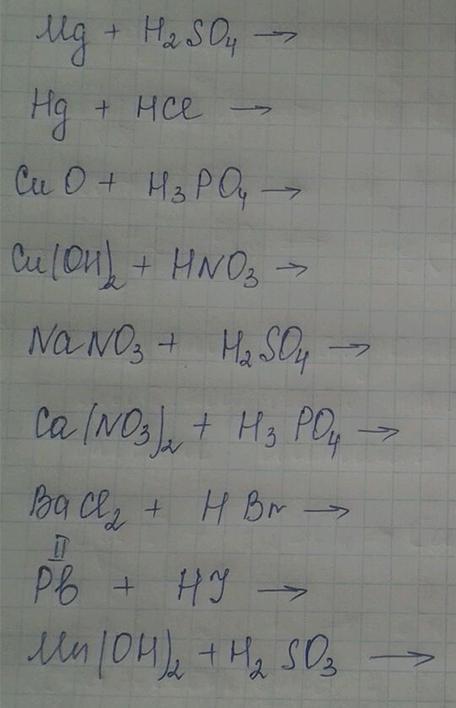 Mg + H₂SO₄ →
Hg + HCl →
CuO + H₃PO₄ →
Cu(OH)₂ + HNO₃ →
NaNO₃ + H₂SO₄ →
Ca(NO₃)₂ + H₃PO₄ →
BaCl₂ + HBr →
II
Pb + HJ →
Mn(OH)₂ + H₂SO₃ →